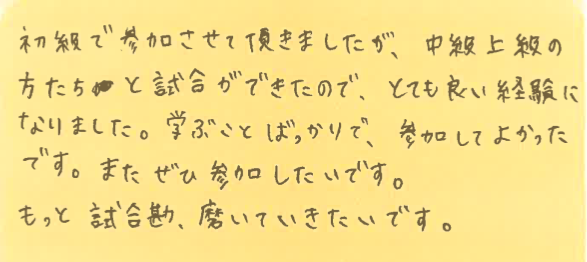 初級で参加させて頂きましたが、中級上級の
方たちと試合ができたので、とても良い経験に
なりました。学ぶことばっかりで、参加してよかった
です。またぜひ参加したいです。
もっと試合勘、磨いていきたいです。